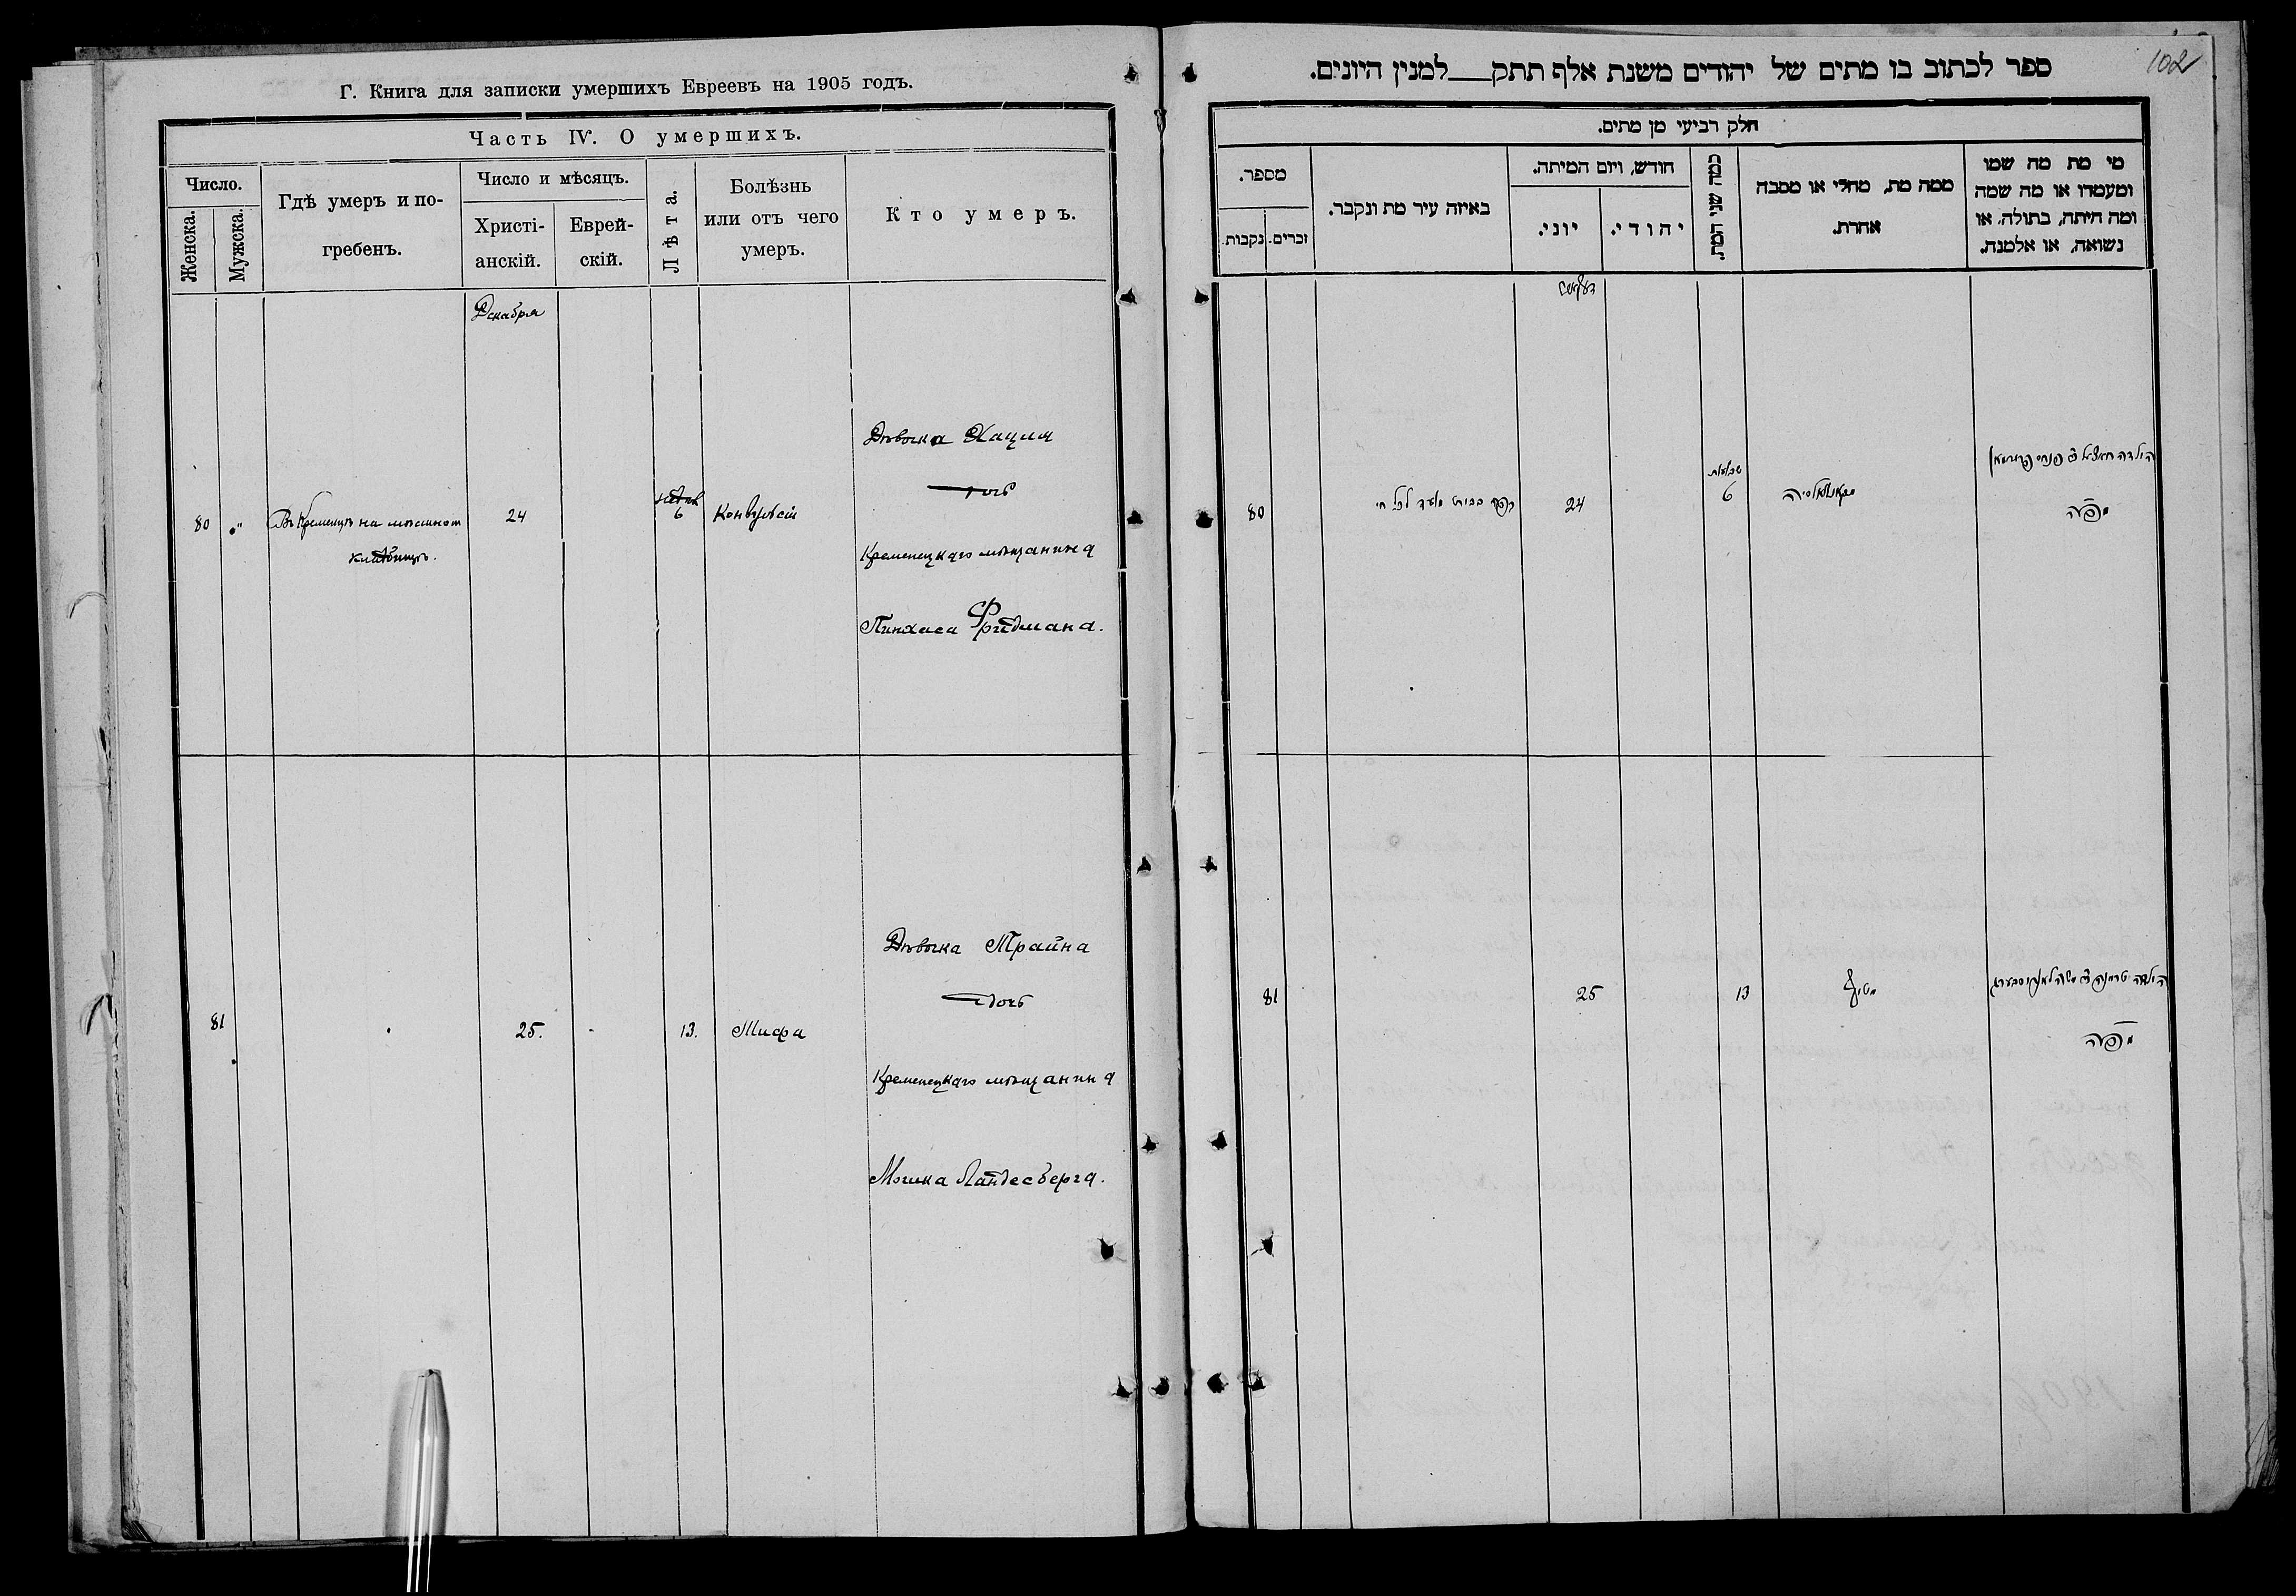 Г. Книга для записки умершихъ Евреевъ на 1905 годъ.
Часть IV. О умершихъ.
Число.
Женска.
Мужска.
Гдѣ умеръ и по-
гребенъ.
Число и мѣсяцъ.
Христі-
анскій.
Еврей-
скій.
Лѣта.
Болѣзнь
или отъ чего
умеръ.
Кто умеръ.
Декабря
80
"
Въ Кременцѣ на мѣстном
кладбищѣ.
24
6
Конвульсій
Дѣвочка
дочь
Кременецкаго мѣщанина
Пинхаса Фридмана.
81
25.
13.
Тифа
Дѣвочка Трайна
дочь
Кременецкаго мѣщанина
Мошка Ландесберга.
102
ספר לכתוב בו מתים של יהודים משנת אלף תתק___למנין היונים.
חלק רביעי מן מתים.
מספר.
נקבות.
זכרים.
באיזה עיר מת ונקבר.
חודש, ויום המיתה.
יוני.
יהודי.
כמה שני המת.
ממה מת, מחלי או מסבה
אחרת.
מי מת מה שמו
ומעמדו או מה שמה
ומה היתה, בתולה, או
נשואה, או אלמנה.
80
24
6
הילדה
81
25
13
הילדה